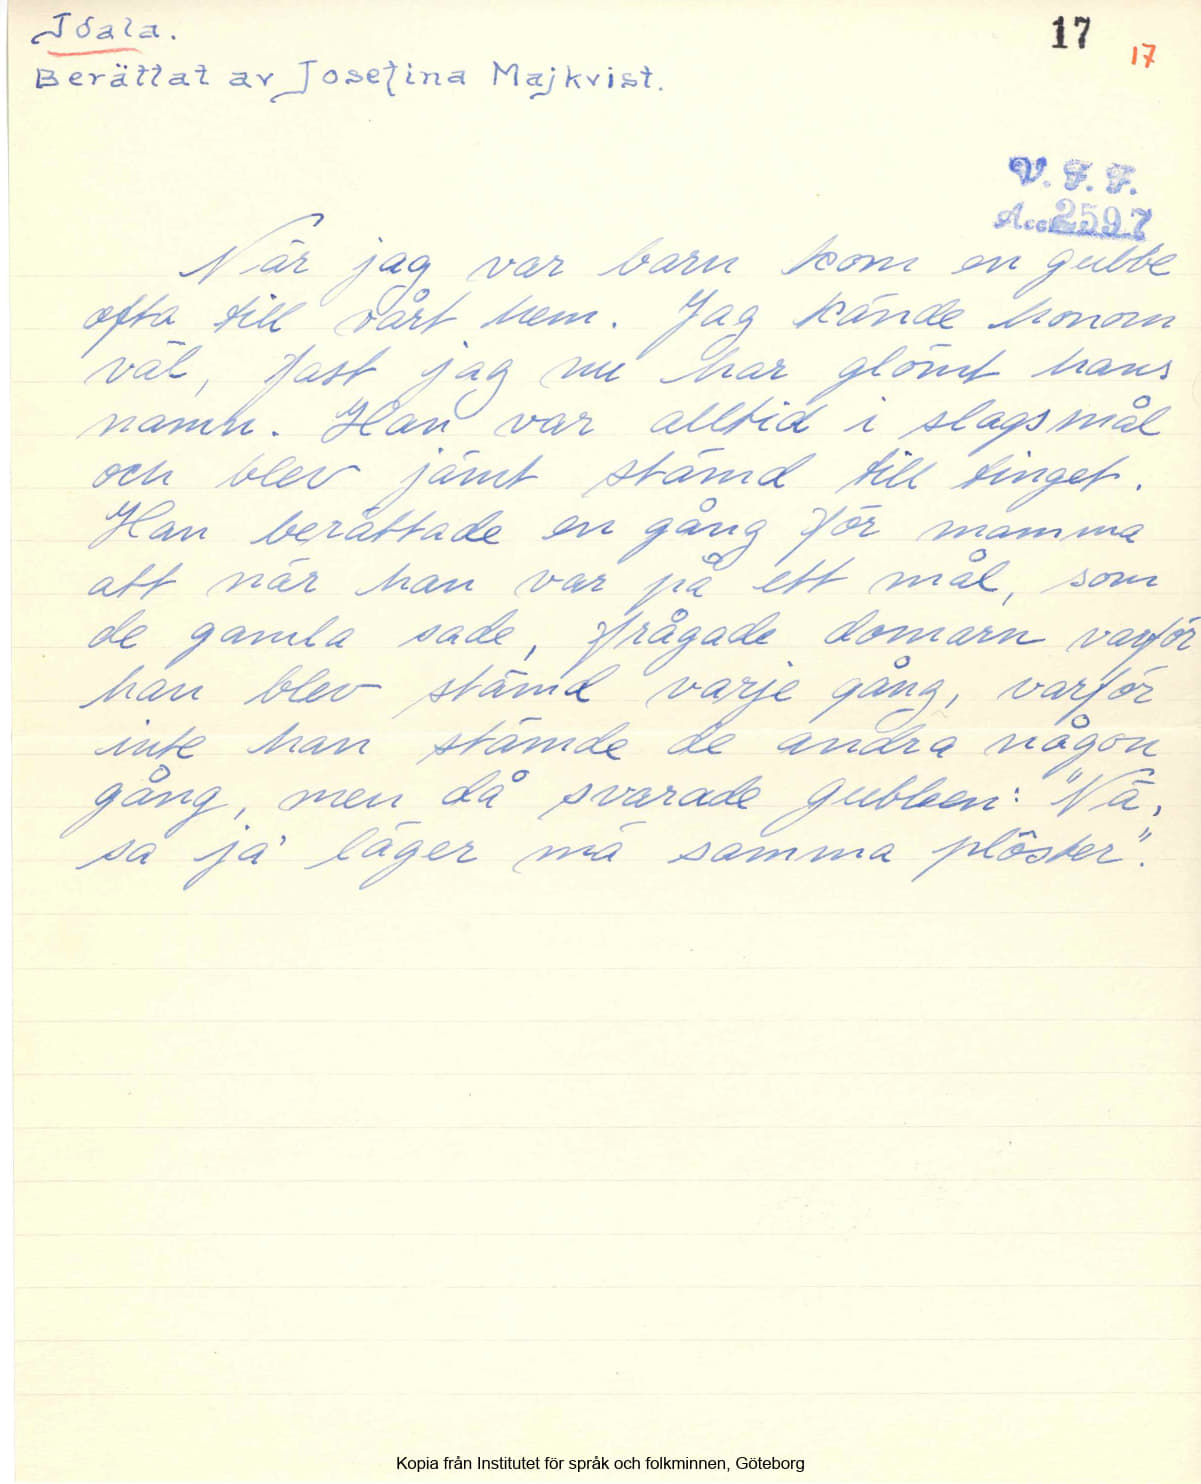 Idala.
17
17
Berättat av Josefina Majkvist.
V. F. F.
Acc 2597
När jag var barn kom en gubbe
ofta till vårt hem. Jag kände honom
väl, fast jag nu har glömt hans
namn. Han var alltid i slagsmål
och blev jämt stämd till tinget.
Han berättade en gång för mamma
att när han var på ett mål, som
de gamla sade, frågade domarn varför
han blev stämd varje gång, varför
inte han stämde de andra någon
gång, men då svarade gubben: "Nä,
sa ja' läger mä samma plöster".
Kopia från Institutet för språk och folkminnen, Göteborg